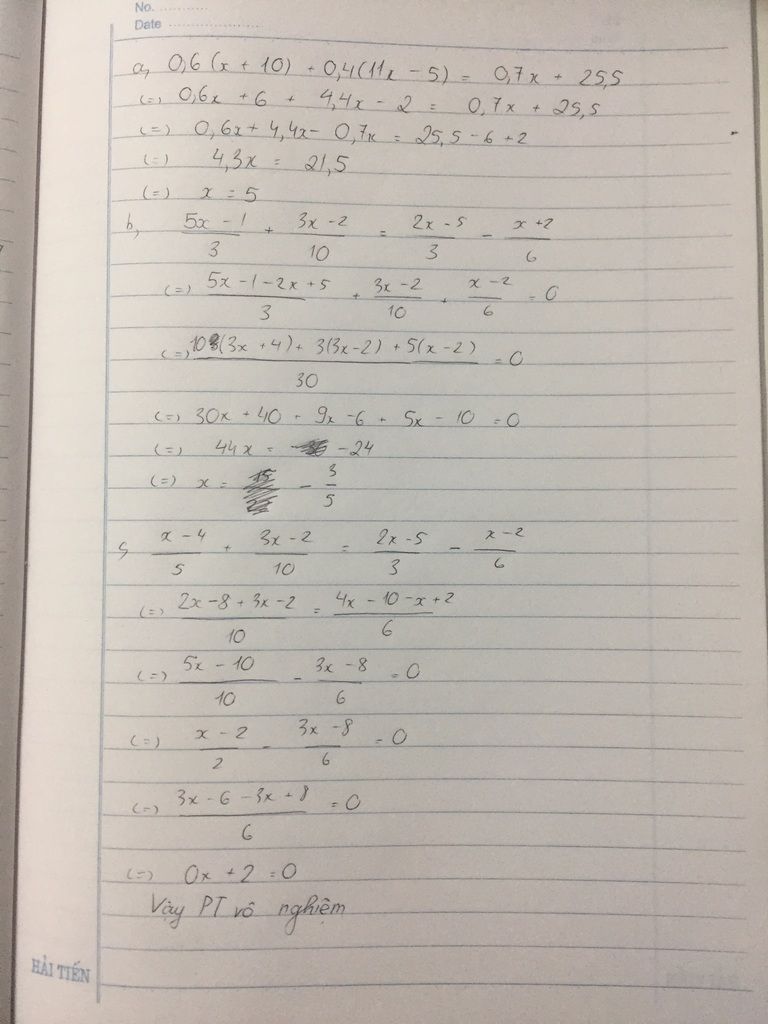 No. ............
Date ........................
a, 0,6(x + 10) + 0,4(11x - 5) = 0,7x + 25,5
(=) 0,6x + 6 + 4,4x - 2 = 0,7x + 25,5
(=) 0,6x + 4,4x - 0,7x = 25,5 - 6 + 2
(=) 4,3x = 21,5
(=) x = 5
b, (5x - 1)/3 + (3x - 2)/10 = (2x - 5)/3 - (x + 2)/6
(=) (5x - 1 - 2x + 5)/3 + (3x - 2)/10 + (x - 2)/6 = 0
(=) (10(3x + 4) + 3(3x - 2) + 5(x - 2))/30 = 0
(=) 30x + 40 + 9x - 6 + 5x - 10 = 0
(=) 44x = - 24
(=) x = - 3/5
c, (x - 4)/5 + (3x - 2)/10 = (2x - 5)/3 - (x - 2)/6
(=) (2x - 8 + 3x - 2)/10 = (4x - 10 - x + 2)/6
(=) (5x - 10)/10 - (3x - 8)/6 = 0
(=) (x - 2)/2 - (3x - 8)/6 = 0
(=) (3x - 6 - 3x + 8)/6 = 0
(=) 0x + 2 = 0
Vậy PT vô nghiệm
HẢI TIẾN